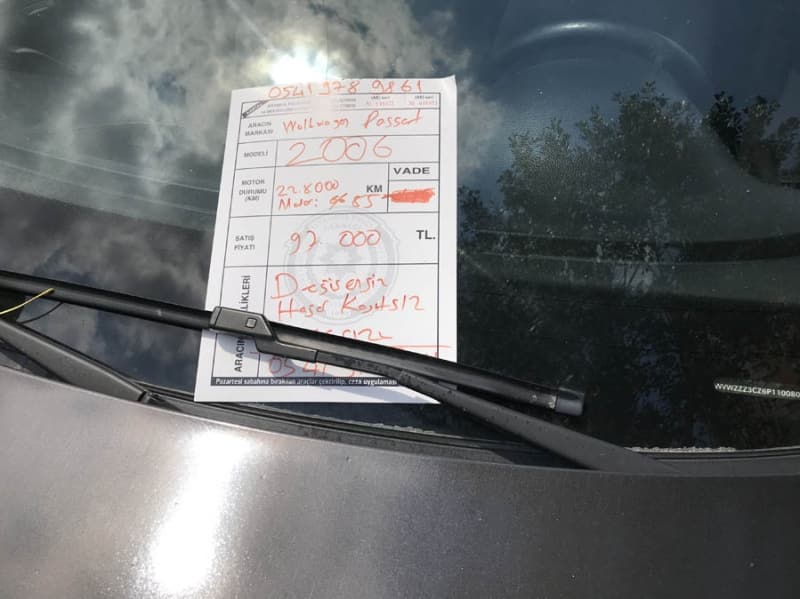 0541 978 9861
ARACIN MARKASI Wolkwagen Passat
MODELİ 2006
VADE
MOTOR DURUMU (KM) 228000 KM
Motor:
SATIŞ FİYATI 97 000 TL.
Değişensiz
Hasar Kayıtsız
0541
Pazartesi sabahına bırakılan araçlar çektirilip, ceza uygulaması
WVWZZZ3CZ6P11008